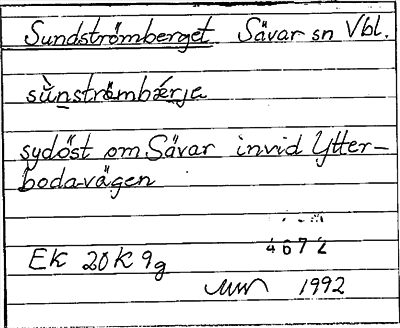 Sundströmberget Sävar sn Vbl.
sùnsträmbǽrje
sydöst om Sävar invid Ytter-
boda-vägen
4672
EK 20K 9g
1992